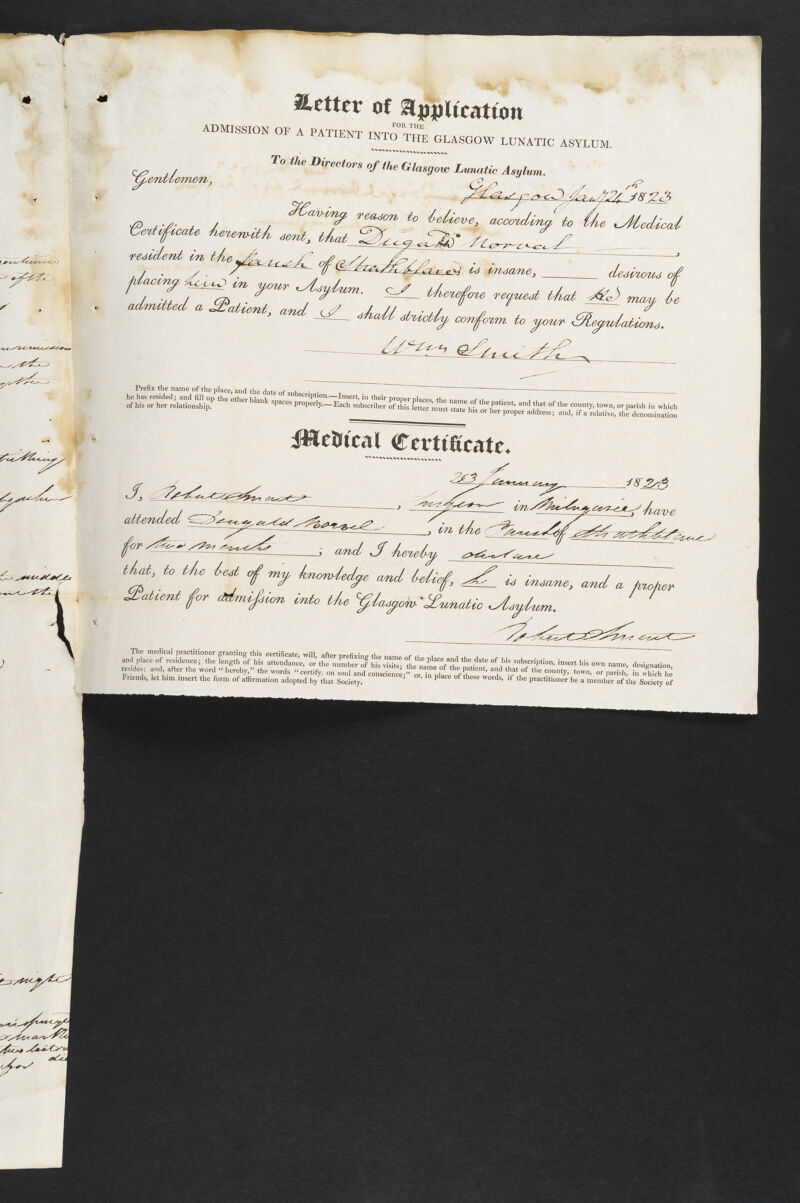 Letter of Application
FOR THE
ADMISSION OF A PATIENT INTO THE GLASGOW LUNATIC ASYLUM.
To the Directors of the Glasgow Lunatic Asylum.
Gentlemen,
Glasgow Jany 24th 1823
Having reason to believe, according to the Medical
Certificate herewith sent, that Dugald Norval,
resident in the parish of Strathblane is insane, desirous of
placing him in your Asylum. I therefore request that He may be
admitted a Patient, and I shall strictly conform to your Regulations.
Wm Smith
Prefix the name of the place, and the date of subscription.—Insert, in their proper places, the name of the patient, and that of the county, town, or parish in which
he has resided; and fill up the other blank spaces properly.—Each subscriber of this letter must state his or her proper address; and, if a relative, the denomination
of his or her relationship.
Medical Certificate.
23 January 1823
I, Robert Smart, Surgeon in Milnguvie, have
attended Dougald Norvel, in the Parish of Strathblane
for two months; and I hereby declare
that, to the best of my knowledge and belief, he is insane, and a proper
Patient for admission into the Glasgow Lunatic Asylum.
Robert Smart
The medical practitioner granting this certificate, will, after prefixing the name of the place and the date of his subscription, insert his own name, designation,
and place of residence; the length of his attendance, or the number of his visits; the name of the patient, and that of the county, town, or parish, in which he
resides: and, after the word "hereby," the words "certify, on soul and conscience;" or, in place of these words, if the practitioner be a member of the Society of
Friends, let him insert the form of affirmation adopted by that Society.
of the
the
middle
night